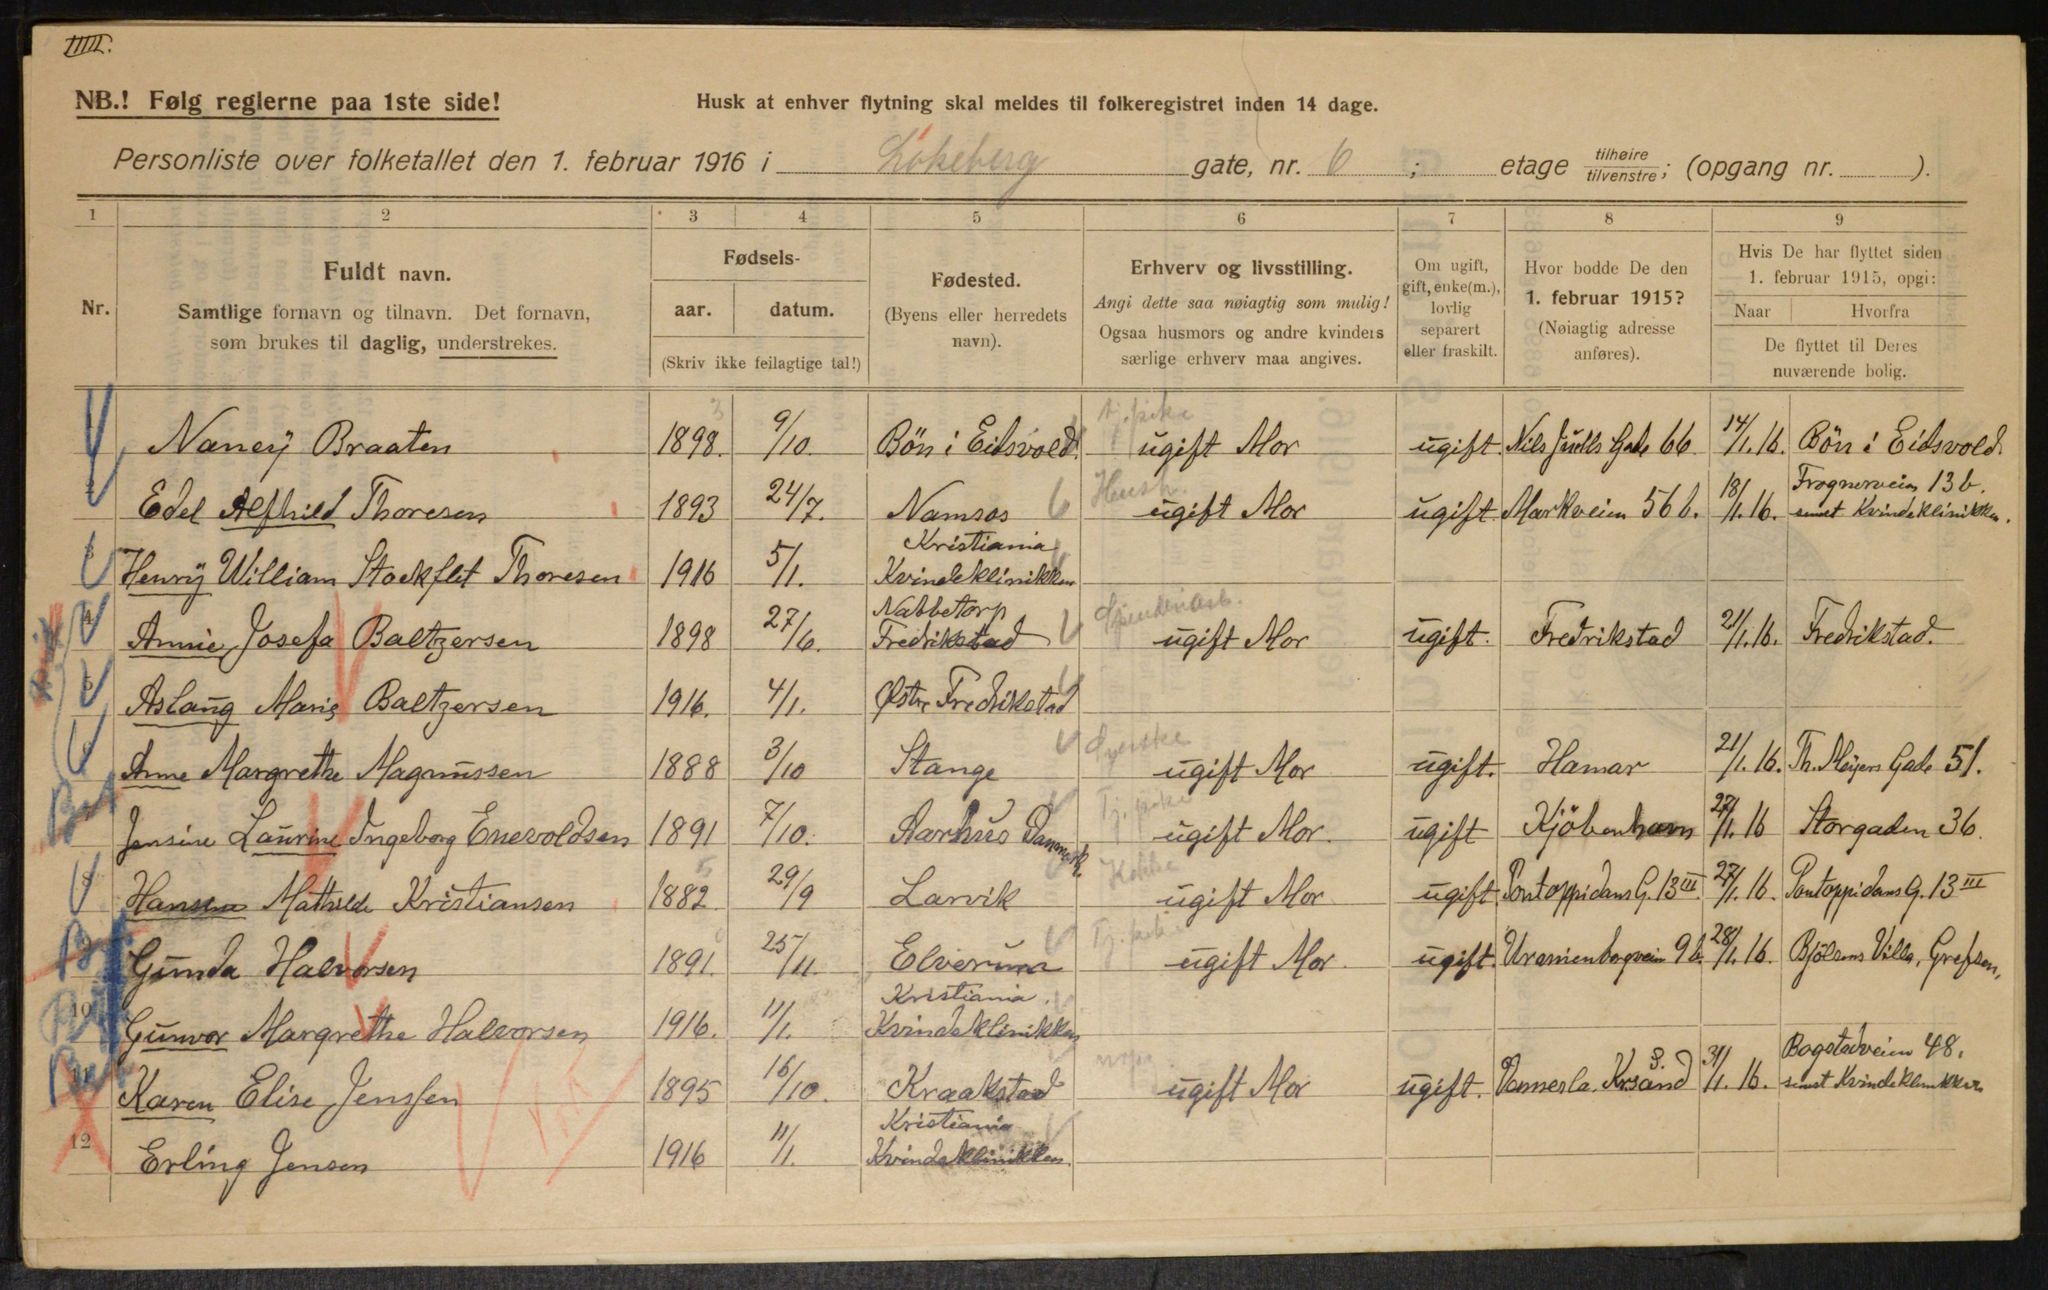 IIIII.
NB.! Følg reglerne paa 1ste side!
Husk at enhver flytning skal meldes til folkeregistret inden 14 dage.
Personliste over folketallet den 1. februar 1916 i Løkeberg gate, nr. 6 ; etage tilhøire/tilvenstre; (opgang nr. ).
1 2 3 4 5 6 7 8 9
Nr.
Fuldt navn.
Samtlige fornavn og tilnavn. Det fornavn,
som brukes til daglig, understrekes.
Fødsels-
aar. datum.
(Skriv ikke feilagtige tal!)
Fødested.
(Byens eller herredets
navn).
Erhverv og livsstilling.
Angi dette saa nøiagtig som mulig!
Ogsaa husmors og andre kvinders
særlige erhverv maa angives.
Om ugift,
gift, enke(m.),
lovlig
separert
eller fraskilt.
Hvor bodde De den
1. februar 1915?
(Nøiagtig adresse
anføres).
Hvis De har flyttet siden
1. februar 1915, opgi:
Naar Hvorfra
De flyttet til Deres
nuværende bolig.
Nancy Braaten 1898. 9/10. Bön i Eidsvold. ugift Mor ugift. Nils Juells Gade 66. 14/1.16. Bön i Eidsvold.
Edel Alfhild Thoresen 1893 24/7. Namsos Hush. ugift Mor ugift Markveien 56 b. 18/1.16. Frognerveien 13 b.
senest Kvindeklinikken.
Henry William Stockflet Thoresen 1916 5/1. Kristiania
Kvindeklinikken
Annie Josefa Baltzersen 1898 27/6. Nabbetorp
Fredrikstad ugift Mor ugift. Fredrikstad 21/1.16. Fredrikstad.
Aslaug Marie Baltzersen 1916. 4/1. Østre Fredrikstad
Anne Margrethe Magnussen 1888 3/10 Stange Syerske ugift Mor ugift. Hamar 21/1.16. Th. Meyers Gade 51.
Jensine Laurine Ingeborg Enevoldsen 1891 7/10. Aarhus Danmark. Tj. pike ugift Mor. ugift Kjöbenhavn 27/1.16 Storgaden 36.
Hansine Mathilde Kristiansen 1882 29/9 Larvik Kokke ugift Mor ugift Pontoppidans G. 13 III. 27/1.16. Pontoppidans G. 13 III
Gunda Halvorsen 1891 25/11. Elverum Tj. pike ugift Mor. ugift. Uranienborgveien 9 b. 28/1.16. Bjölsens Villa, Grefsen,
10 Gunvor Margrethe Halvorsen 1916. 11/1. Kristiania.
Kvindeklinikken
Karen Elise Jenssen 1895 16/10. Kraakstad ugift Mor ugift. Vennesla. Kr.sand S. 31/1.16. Bogstadveien 48.
senest Kvindeklinikken
12 Erling Jensen 1916 11/1. Kristiania
Kvindeklinikken.